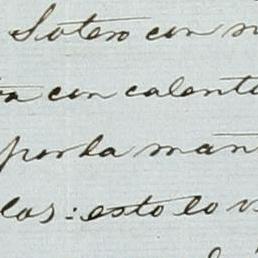 Sotero con
con calentu
por la mañ
las: esto lo v